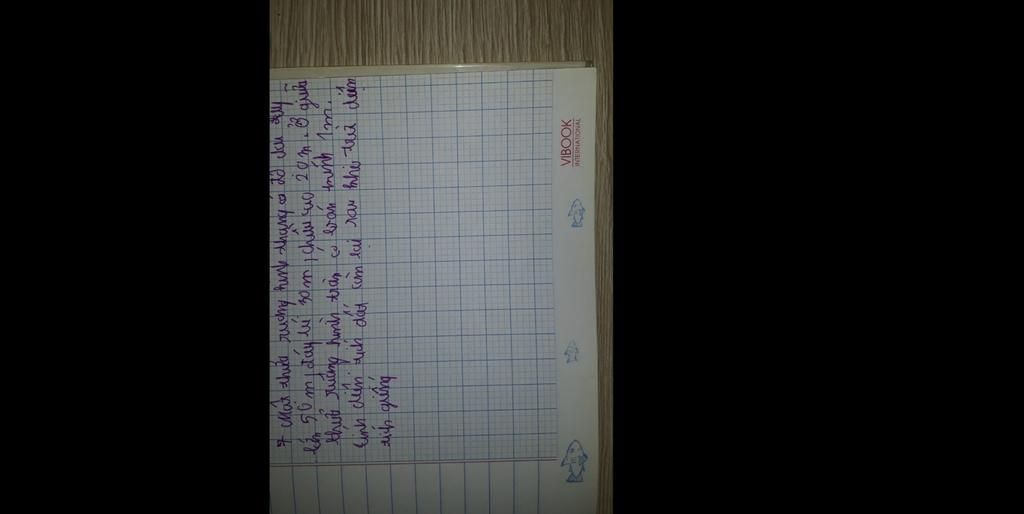 Một thửa ruộng hình thang có độ dài đáy
lớn 50 m, đáy bé 30 m, chiều cao 20 m. Ở giữa
thửa ruộng hình tròn có bán kính 1 m.
tính diện tích đất còn lại sau khi trừ diện
tích giếng
VIBOOK
INTERNATIONAL